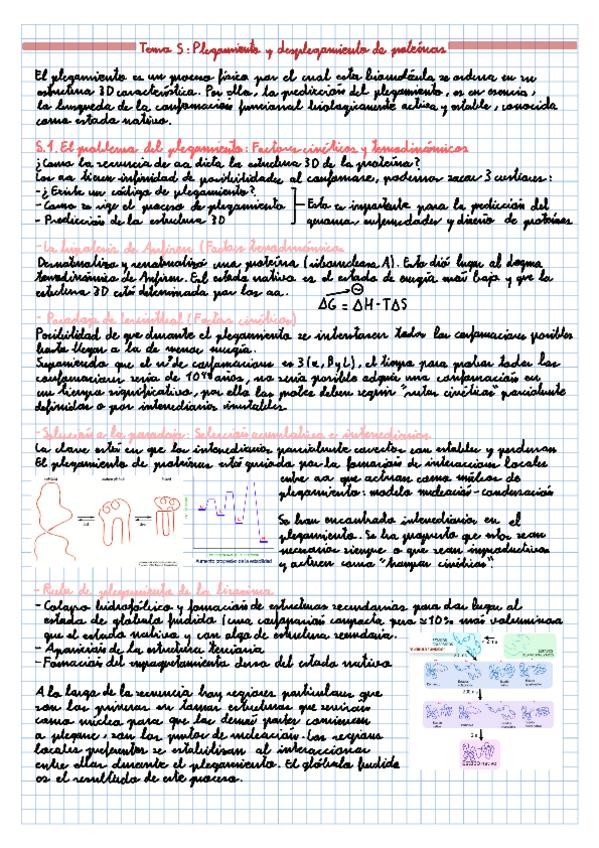 Tema 5: Plegamiento y desplegamiento de proteínas
El plegamiento es un proceso físico por el cual esta biomolécula se ordena en su
estructura 3D característica. Por ello, la predicción del plegamiento, es en esencia,
la búsqueda de la conformación funcional biológicamente activa y estable, conocida
como estado nativo.
5.1. El problema del plegamiento: Factores cinéticos y termodinámicos
¿Como la secuencia de aa dicta la estructura 3D de la proteína?
Los aa tienen infinidad de posibilidades al conformarse, podemos sacar 3 cuestiones:
- ¿Existe un código de plegamiento?
- Como se rige el proceso de plegamiento
- Predicción de la estructura 3D
Esto es importante para la predicción del
genoma enfermedades y diseño de proteínas
- La hipótesis de Anfinsen (Factores termodinámicos
Desnaturalizo y renaturalizó una proteína (ribonucleasa A). Esto dió lugar al dogma
termodinámico de Anfinsen. El estado nativo es el estado de energía más baja y que la
estructura 3D está determinada por los aa.
ΔG = ΔH - TΔS
- Paradoja de Levinthal (Factores cinéticos)
Posibilidad de que durante el plegamiento se intentaran todas las conformaciones posibles
hasta llegar a la de menor energía.
Suponiendo que el nº de conformaciones es 3 (α, β y L), el tiempo para probar todas las
conformaciones sería de años, no sería posible adquirir una conformación en
un tiempo significativo, por ello las protes deben seguir "rutas cinéticas" parcialmente
definidas o por intermediarios inestables.
- Solución a la paradoja: Selección acumulativa e intermediarios
La clave está en que los intermediarios parcialmente correctos son estables y perduran
El plegamiento de proteínas está guiado por la formación de interacciones locales
entre aa que actúan como núcleos de
plegamiento: modelo nucleación-condensación
Se han encontrado intermediarios en el
plegamiento. Se ha propuesto que estos sean
necesarios siempre o que sean improductivos
y actúen como "trampas cinéticas".
Aumento progresivo de la estabilidad
- Ruta de plegamiento de la
- Colapso hidrofóbico y formación de estructuras secundarias para dar lugar al
estado de glóbulo fundido (una conformación compacta pero ≈10% más voluminosa
que el estado nativo y con algo de estructura secundaria.
- Aparición de la estructura terciaria
- Formación del empaquetamiento denso del estado nativo
A lo largo de la secuencia hay regiones particulares que
son las primeras en tomar estructuras que servirán
como núcleo para que las demás partes comiencen
a plegarse, son los puntos de nucleación. Las regiones
locales preferentes se estabilizan al interaccionar
entre ellas durante el plegamiento. El glóbulo fundido
es el resultado de este proceso.
Estado nativo